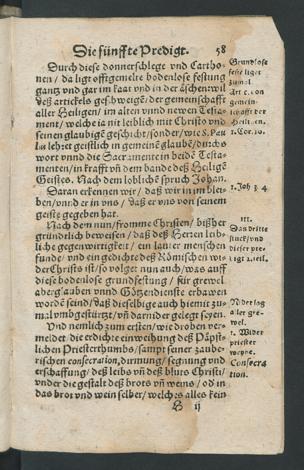 Die fünffte Predigt. 58
Durch diese donnerschlege vnd Cartho-
nen / da ligt offtgemelte bodenlose festung
gantz vnd gar im kaat vnd in der äschen will
deß artickels geschweigē / der gemeinschafft
aller Heiligen / im alten vnnd newen Testa-
ment / welche ia nit leiblich mit Christo vnd
seinen glaubigē geschicht / sonder / wie S. Pau
lus lehret geistlich in gemeinē glaubē / durchs
wort vnnd die Sacramente in beidē Testa-
menten / in krafft vñ dem bande deß Heiligē
Geistes. Nach dem lobliche spruch Johan.
Daran erkennen wir / daß wir in im blei-
ben / vnnd er in vns / daß er vns von seinem
geist gegeben hat.
Nach dem nun / fromme Christen / bißher
gründtlich bewisen / daß deß Herrn leib-
liche gegenwirtigkeit / ein lauter menschen
funde / vnd ein gedichte deß Römischen wi-
derChrists ist / so volget nun auch / was auff
diese bodenlose grundfestung / für grewel
aberglauben vnnd Götzendienste erbawen
wordē seind / daß dieselbige auch hiemit zu-
mal vmbgestürtzt / vñ darnider gelegt seyen.
Vnd nemlich zum ersten / wie droben ver-
meldet / die erdichte einweihung deß Päpst-
lichen Priesterthumbs / sampt seiner zaube-
rischen consecration, dirmung / segnung vnd
erschaffung / deß leibs vñ deß bluts Christi /
vnder die gestalt deß brots vñ weins / od in
das brot vnd wein selber / welches alles kein
H ij
Grundlose
feste ligt
zumal.
Art c. von
gemein-
schafft der
Heiligen.
1. Cor. 10.
1. Joh 3. 4.
III.
Das dritte
stuck / vnd
dieser pre-
digt 2. teil.
Niderlag
aller gre-
wel.
1. Wider
priester
weyhe.
Consecra
tion.